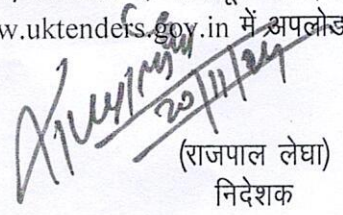 w.uktenders.gov.in में अपलोड
20/11/24
(राजपाल लेघा)
निदेशक